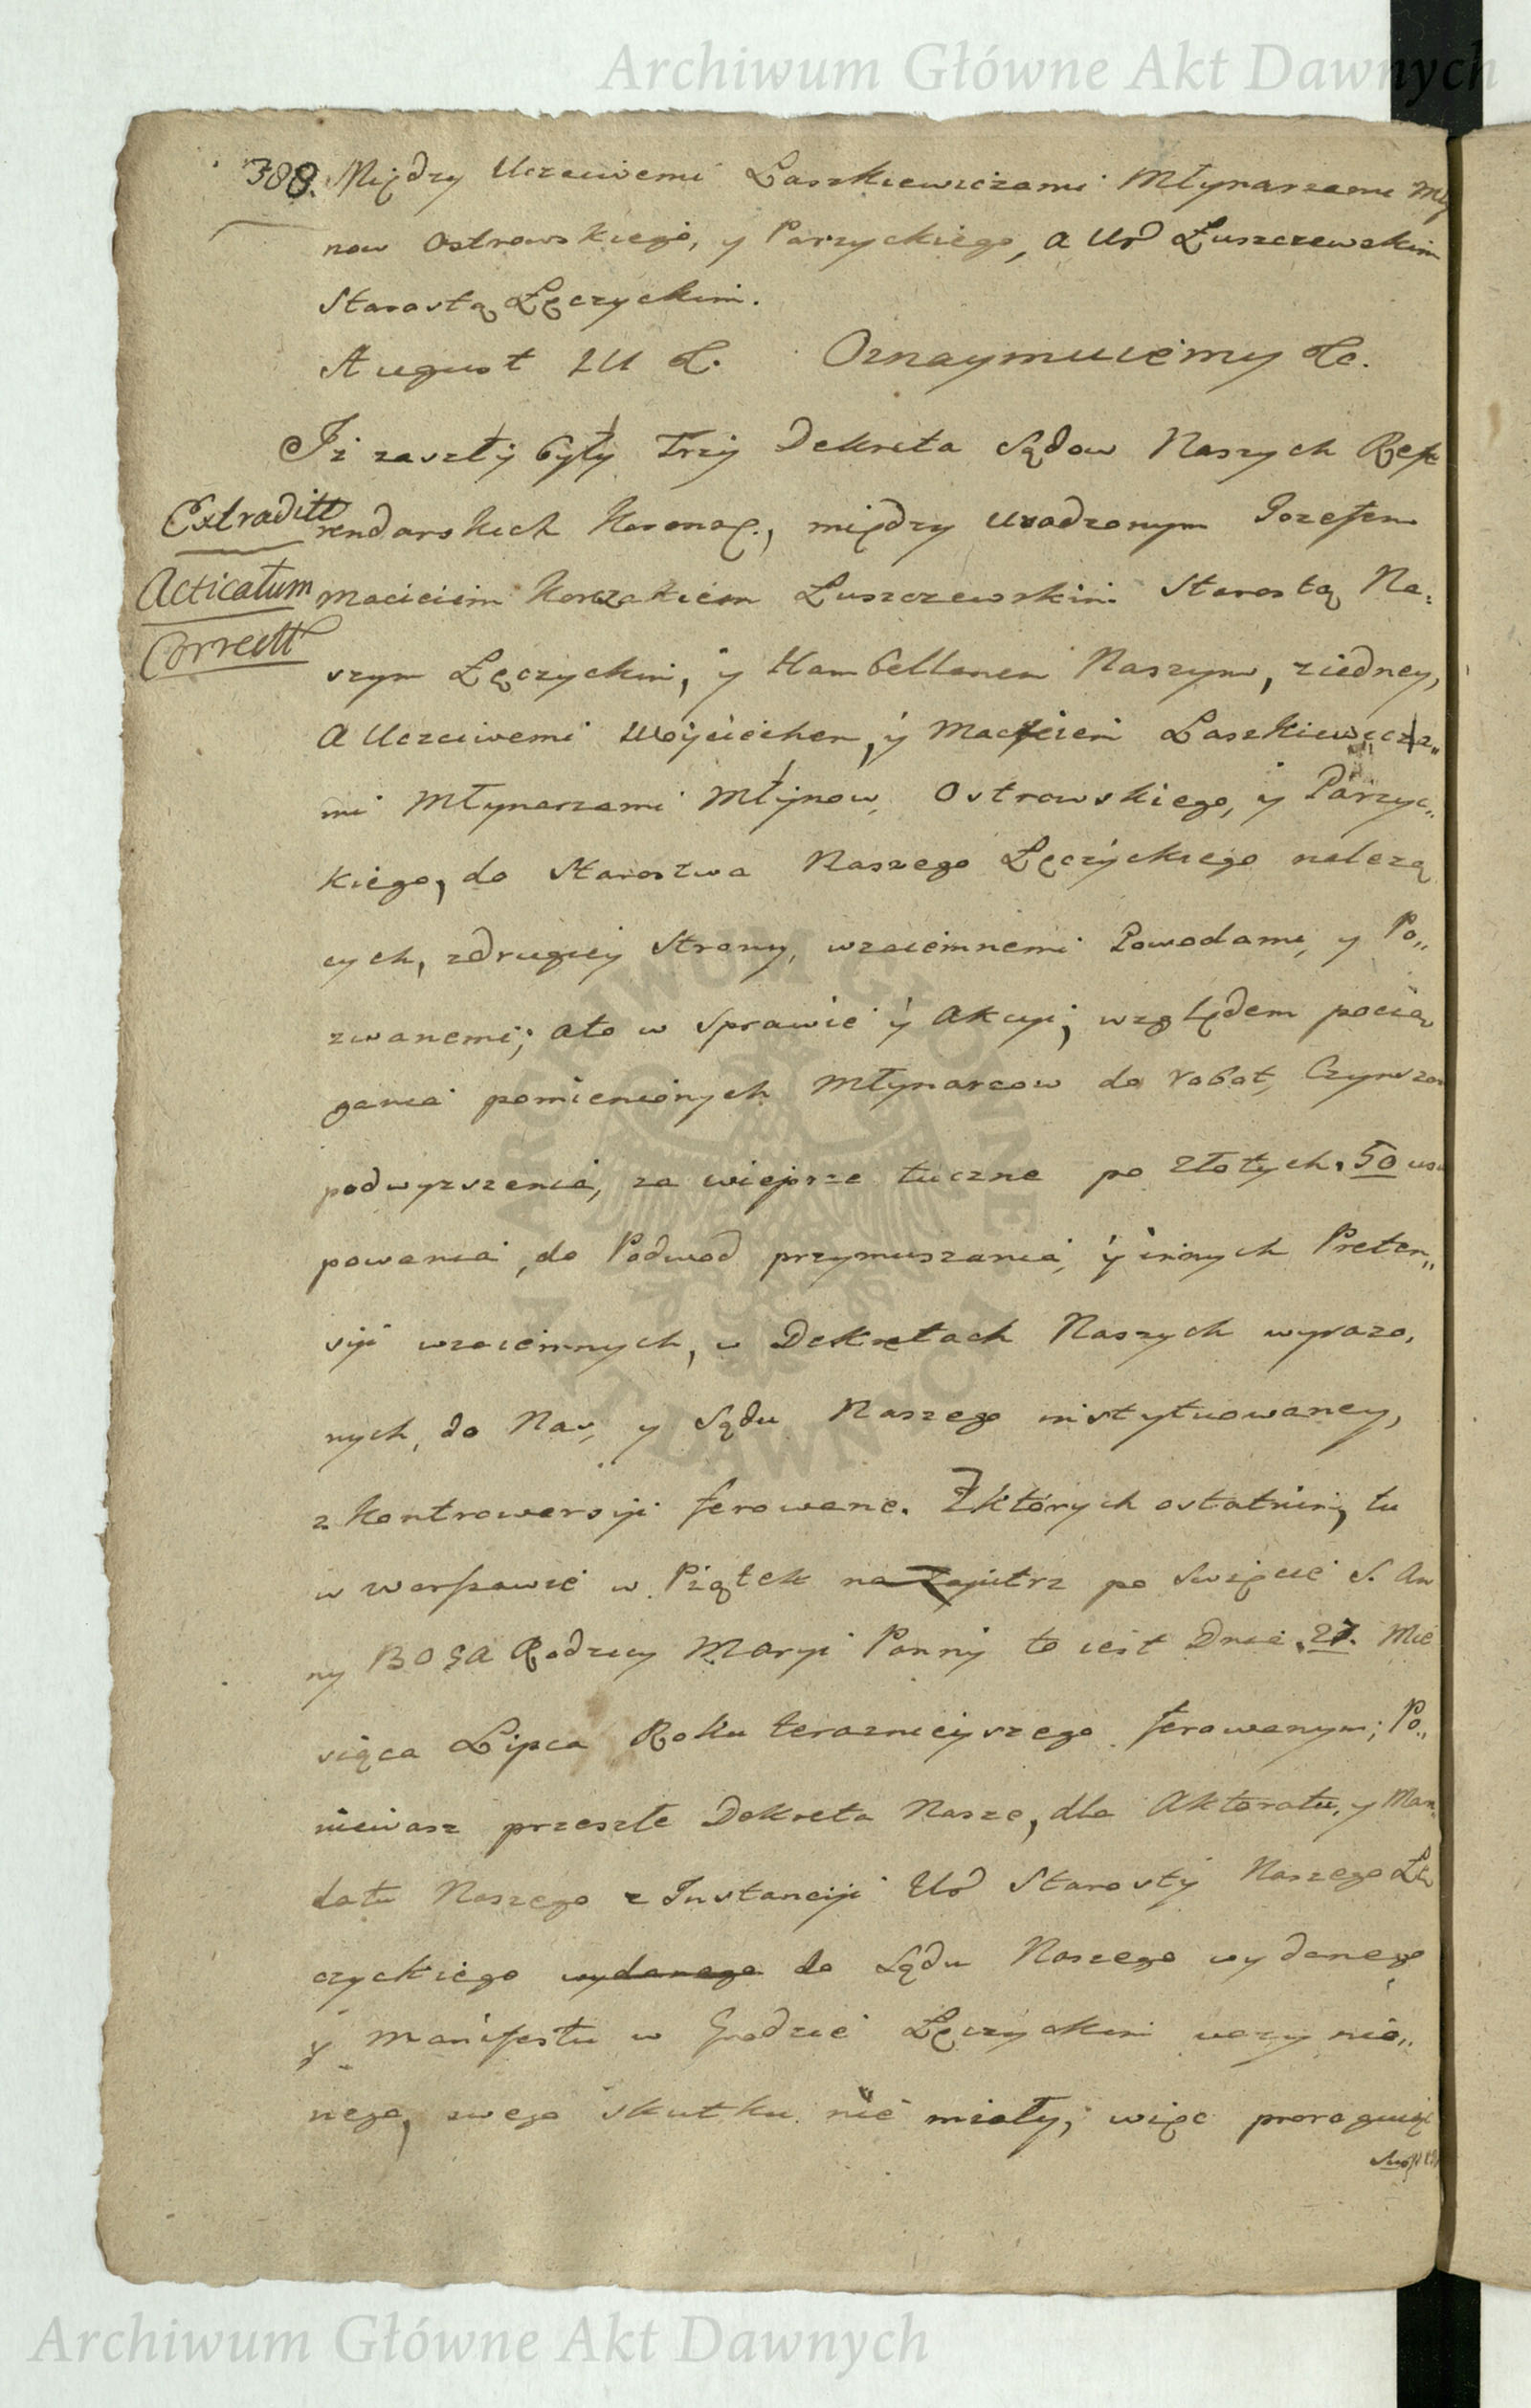 Archiwum Główne Akt Dawnych
388. Między Uczciwemi Laszkiewiczami Młynarzami Mły
now Ostrowskiego, y Parzyckiego, a Ur Łuszczewskim
Starostą Łęczyckim.
August III &. Oznaymuiemy &c.
Iż zaszły były Trzy Dekreta Sądow Naszych Refe
Extraditt
rendarskich Koronq., między Urodzonym Jozefem
Acticatum
Macieiem Korzakiem Łuszczewskim Starostą Na,
Correctt
szym Łęczyckim, y Kambellanem Naszym, ziedney,
a Uczciwemi Woyciechem, y Macieiem Laszkiewicza„
mi Młynarzami Młynow Ostrowskiego, y Parzyc„
kiego, do Starostwa Naszego Łęczyckiego należą
cych, zdrugiey Strony, wzaiemnemi Powodami, y Po„
zwanemi; ato w sprawie y Akcyi, względem pocią
gania pomienionych Młynarzow do robot, Czynszow
podwyzszenia, za wieprze tuczne po złotych. 50 us
powania, do Podwod przymuszania, y innych Preten„
syi wzaiemnych, w Dekretach Naszych wyrazo,
nych, do Nas, y Sądu Naszego instytuowaney,
z Kontrowersyi ferowane. Zktórych ostatnim, tu
w Warszawie w Piątek na Zaiutrz po Swięcie S. An
ny BOGA Rodzicy Maryi Panny to iest Dnia .27. Mie
siąca Lipca Roku teraznieyszego ferowanym; Po„
niewasz przeszłe Dekreta Nasze, dla Aktoratu, y Man
datu Naszego z Instancyi Ur Starosty Naszego Łę
czyckiego wydanego do Sądu Naszego wydanego
y Manifestu w Grodzie Łęczyckim uczynio„
nego, swego skutku nie miały; więc proroguiąc
ARCHIWUM GŁÓWNE AKT DAWNYCH
Archiwum Główne Akt Dawnych